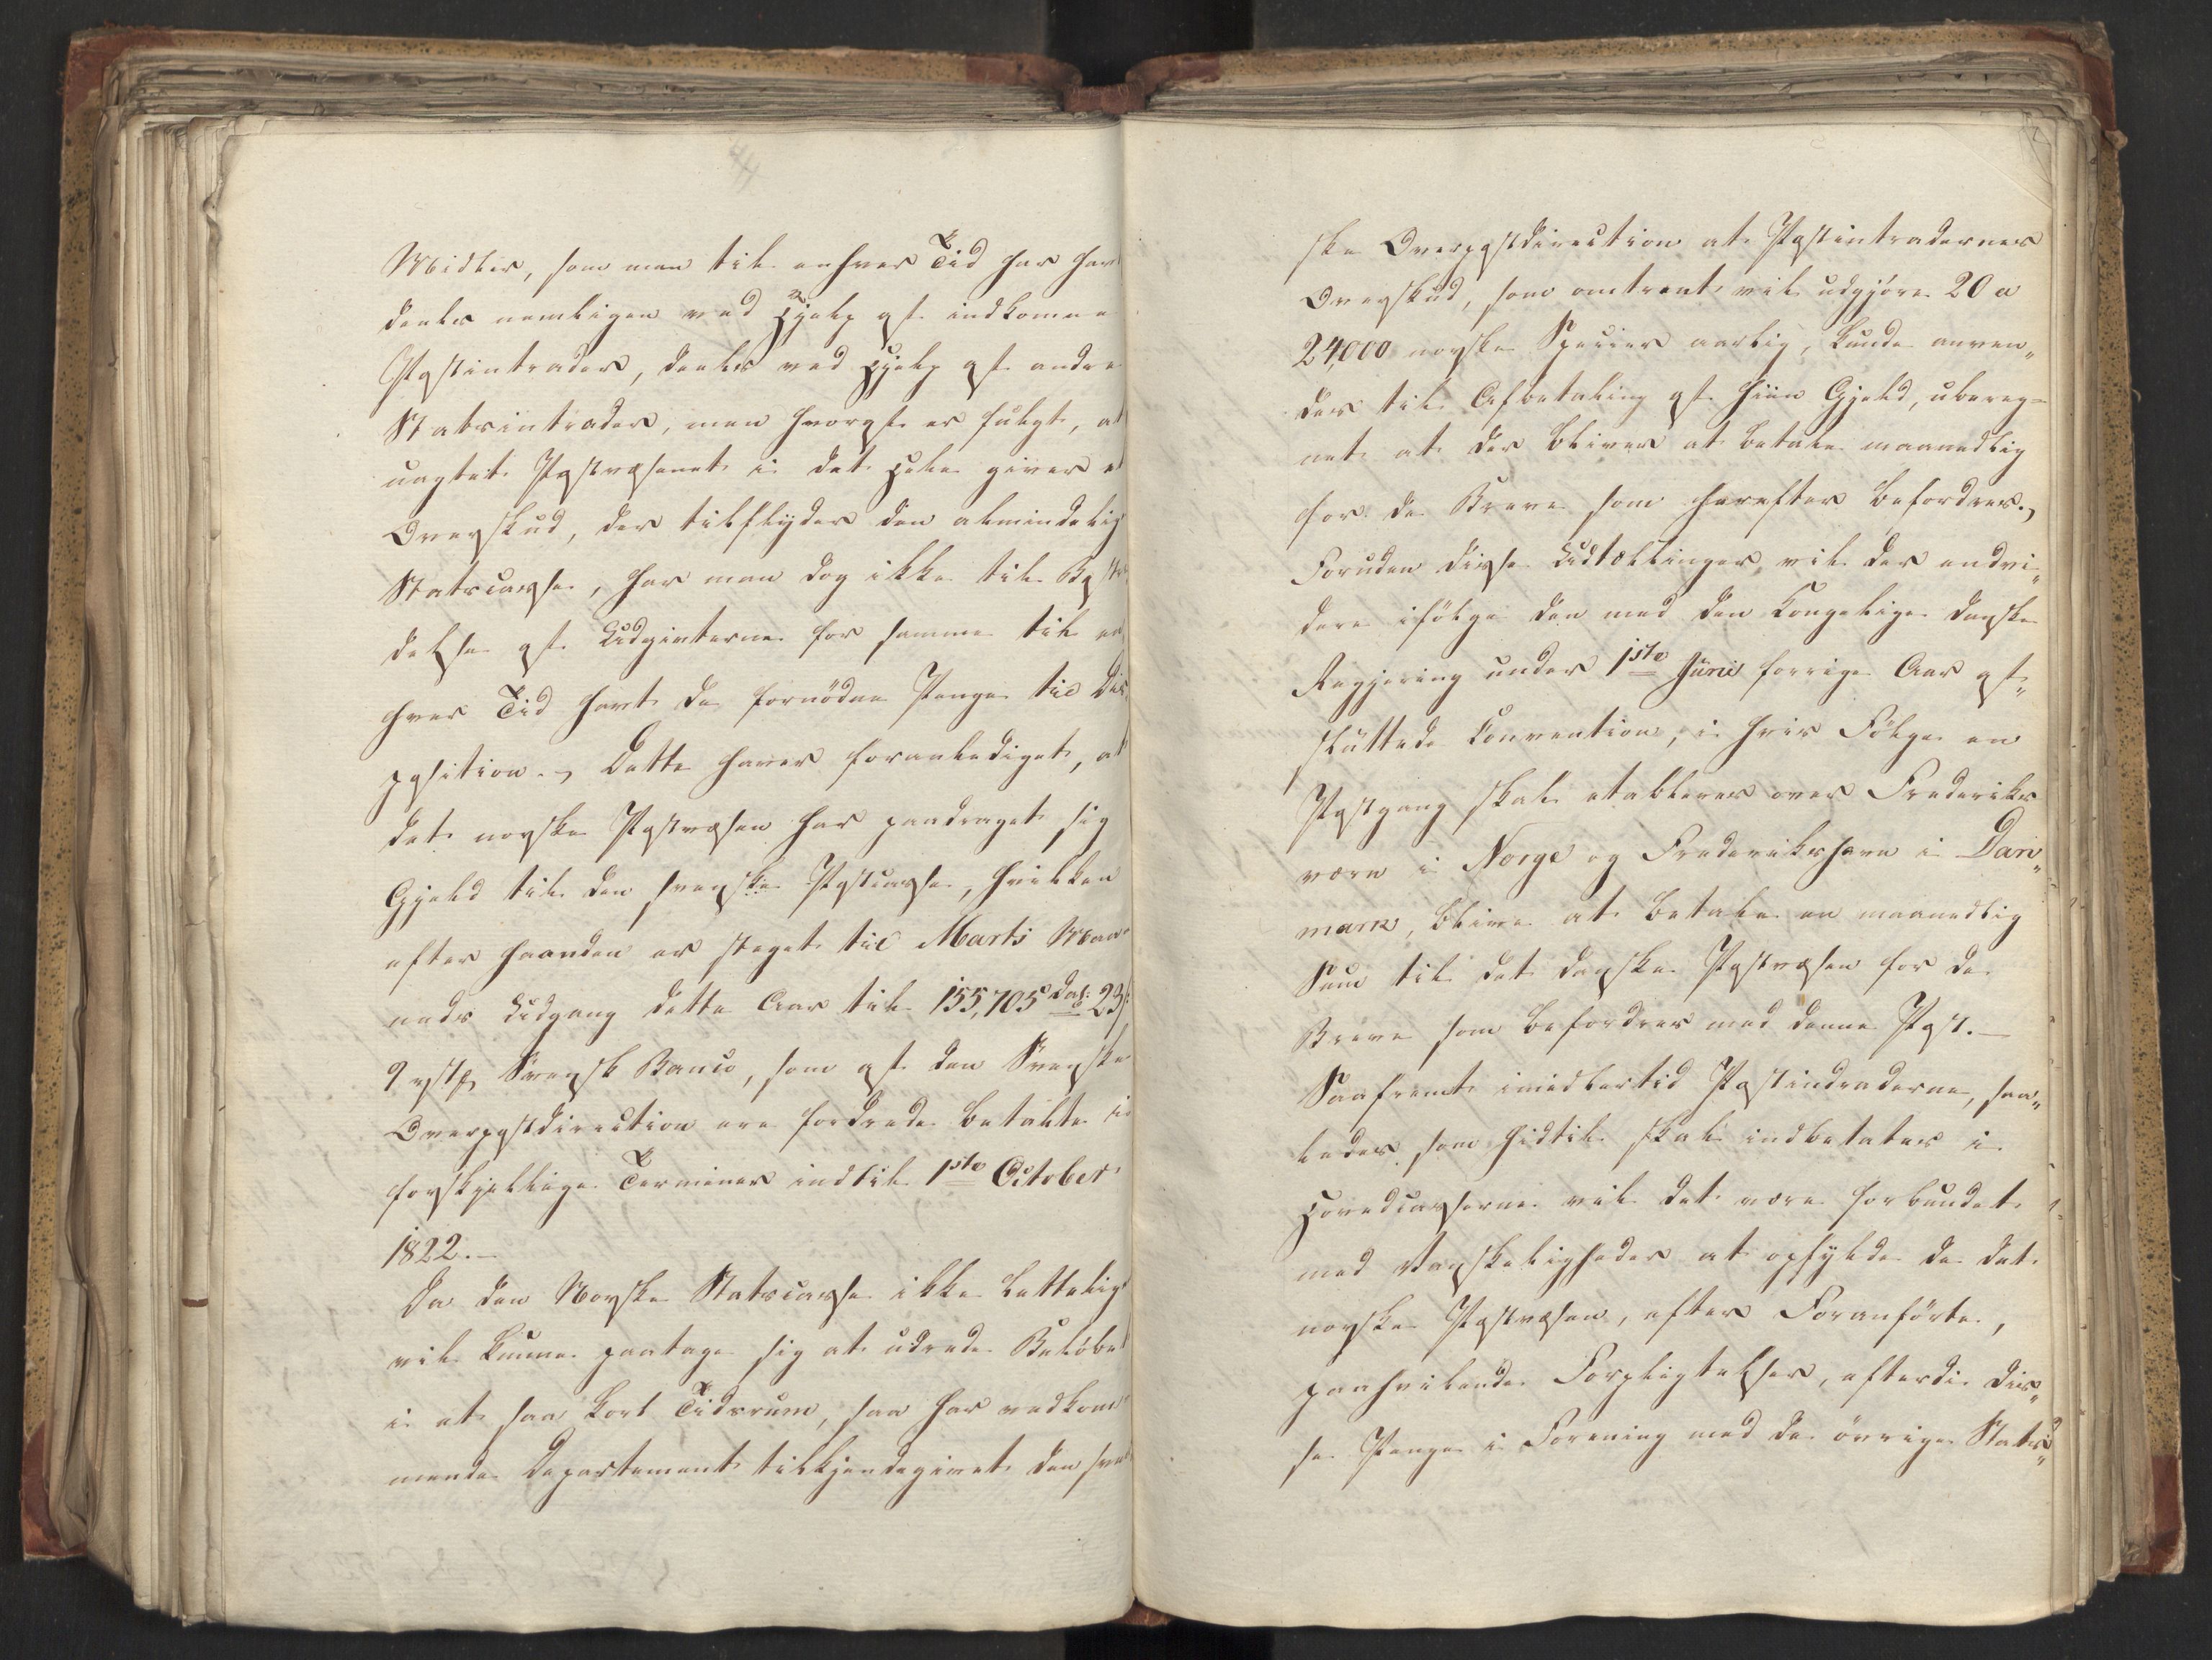 Midler, som man til enhver Tid har havt
deels nemligen ved Hjelp af indkomne
Postintrader, deels ved Hjelp af andre
Statsintrader, men hvoraf er fulgt, at
uagtet Postvæsenet i det Hele giver et
Overskud, der tilflyder den almindelige
Statscasse, har man dog ikke til Bestri
delse af Udgivterne for samme til en
hver Tid havt de fornødne Penge til Dis
position. – Dette haver foranlediget, at
det norske Postvæsen har paadraget sig
Gjeld til den svenske Postcasse, hvilken
efter haanden er steget til Marts Maa
neds Udgang dette Aar til 155,705 Dal: 23 s:
9 rst Svensk Banco, som af den Svenske
Overpostdirection ere fordrede betalte i
forskjellige Terminer indtil 1ste October
1822. –
Da den Norske Statscasse ikke letteligt
vil kunne paatage sig at udrede Beløbet
i et saa kort Tidsrum, saa har vedkom
mende Departement tilkjendegivet den sven
ske Overpostdirection at Postintradernes
Overskud, som omtrent vil udgjøre 20 a
24,000 norske Specier aarlig, kunde anven„
des til Afbetaling af hiin Gjeld, ubereg=
net at der bliver at betale maanedlig
for de Breve som herefter befordres.,
Foruden disse Udtællinger, vil der endvi„
dere ifølge den med den Kongelige danske
Regjering under 1ste Junii forrige Aar af„
sluttede Convention, i hvis Følge en
Postgang skal etableres over Frederiks
værn i Norge og Frederikshavn i Dan„
mark, blive at betale en maanedlig
Sum til det danske Postvæsen for de
Breve som befordres med denne Post. –
Saafremt imidlertid Postindraderne, saa„
ledes som hidtil skal indbetales i
Hovedcasserne vil det være forbundet
med Vanskeligheder at opfylde de det
norske Postvæsen, efter Foranførte,
paahvilende Forpligtelser, efterdi dis„
se Penge i Forening med de øvrige Stats„